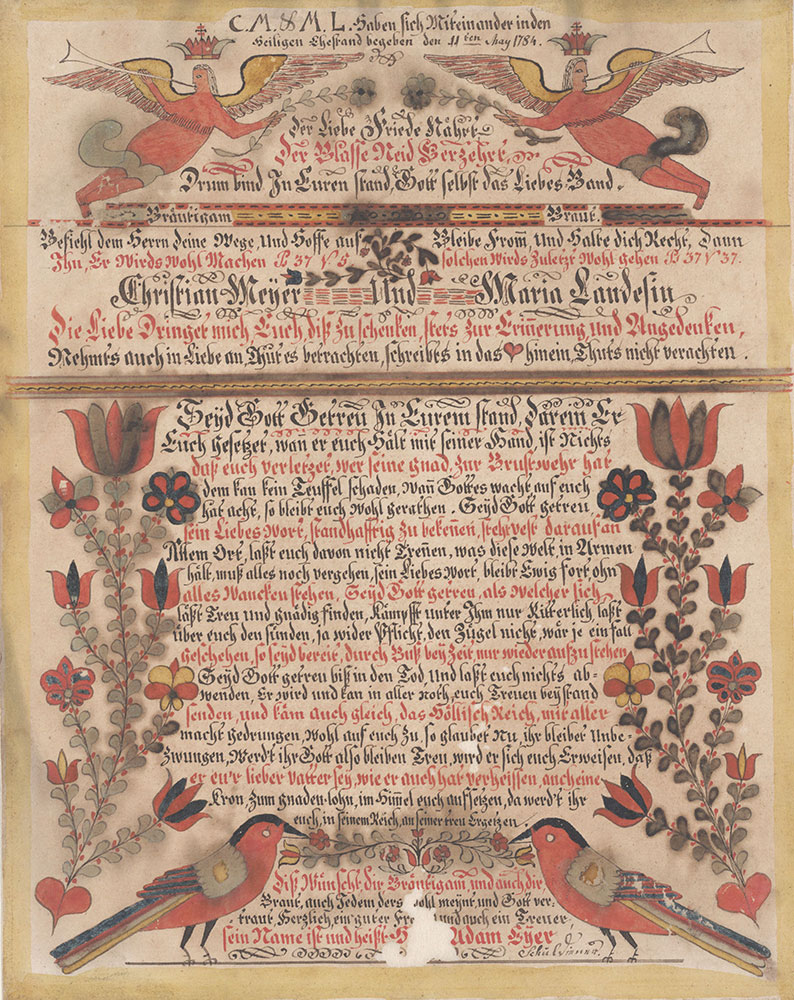 C. M. & M. L. Haben sich Miteinander in den
Heiligen Ehestand begeben den 11ten May 1784.
Der Liebe Friede Nährt
Der Blasse Neid Verzehrt
Drum bind In Euren stand, Gott selbst das Liebes Band.
Bräutigam Braut.
Befiehl dem Herrn deine Wege, Und Hoffe auf Bleibe Fromm, Und Halte dich Recht, Dann
Ihn, Er Wirds wohl Machen P 37 V 5 solchen wirds Zuletzt wohl gehen P 37 V 37.
Christian Meyer Und Maria Landesin
Die Liebe Dringet mich, Euch, diß Zu schencken, stets Zur Erinerung und Angedencken,
Nehmts auch in Liebe an, Thut es betrachten, schreibts in das hinein, Thuts nicht verachten.
Seyd Gott Getreu In Eurem stand, Darein Er
Euch Gesetzet, wan̄ er euch Hält mit seiner Hand, ist Nichts
daß euch verletzet, wer seine gnad, zur Brustwehr hat
dem kan kein Teuffel schaden, Wan̄ Gottes wacht auf euch
hat acht, so bleibt euch wohl gerathen. Seyd Gott getreu,
sein Liebes Wort, standhafftig Zu beken̄en, steht vest darauf an
Allem Ort, laßt euch davon nicht Tren̄en, was diese Welt, in Armen
hält, muß alles noch vergehen, sein Liebes Wort, bleibt Ewig fort, ohn
alles Wancken stehen, Seyd Gott getreu, als Welcher sich
läßt Treu und gnädig finden, Kämpfft unter Ihm nur Ritterlich, laßt
über euch den sünden, ja wider Pflicht, den Zügel nicht, wär je ein fall
geschehen, so seyd bereit, durch Buß bey Zeit, nur wieder aufzustehen
Seyd Gott getreu biß in den Tod, Und laßt euch nichts ab-
wenden, Er wird und kan in aller noth, euch Treuen beystand
senden, und käm auch gleich, das Höllisch Reich, mit aller
macht gedrungen, wohl auf euch Zu, so glaubet Nu, ihr bleibet Unbe-
Zwungen, Werd't ihr Gott also bleiben Treu, wird er sich euch Erweisen, daß
er eu'r lieber vatter sey, wie er auch hat verheissen, auch eine
Kron, zum gnaden-lohn, im Him̄el euch aufsetzen, da werd't ihr
euch, in seinem Reich, an seiner treu Ergetzen.
Diß Wünscht, dir Bräutigam und auch dir
Braut, auch Jedem ders wohl meynt, und Gott ver-
traut, Hertzlich, ein guter und auch ein Treuer
sein Name ist und heißt Adam Eyer
Schuldiener.